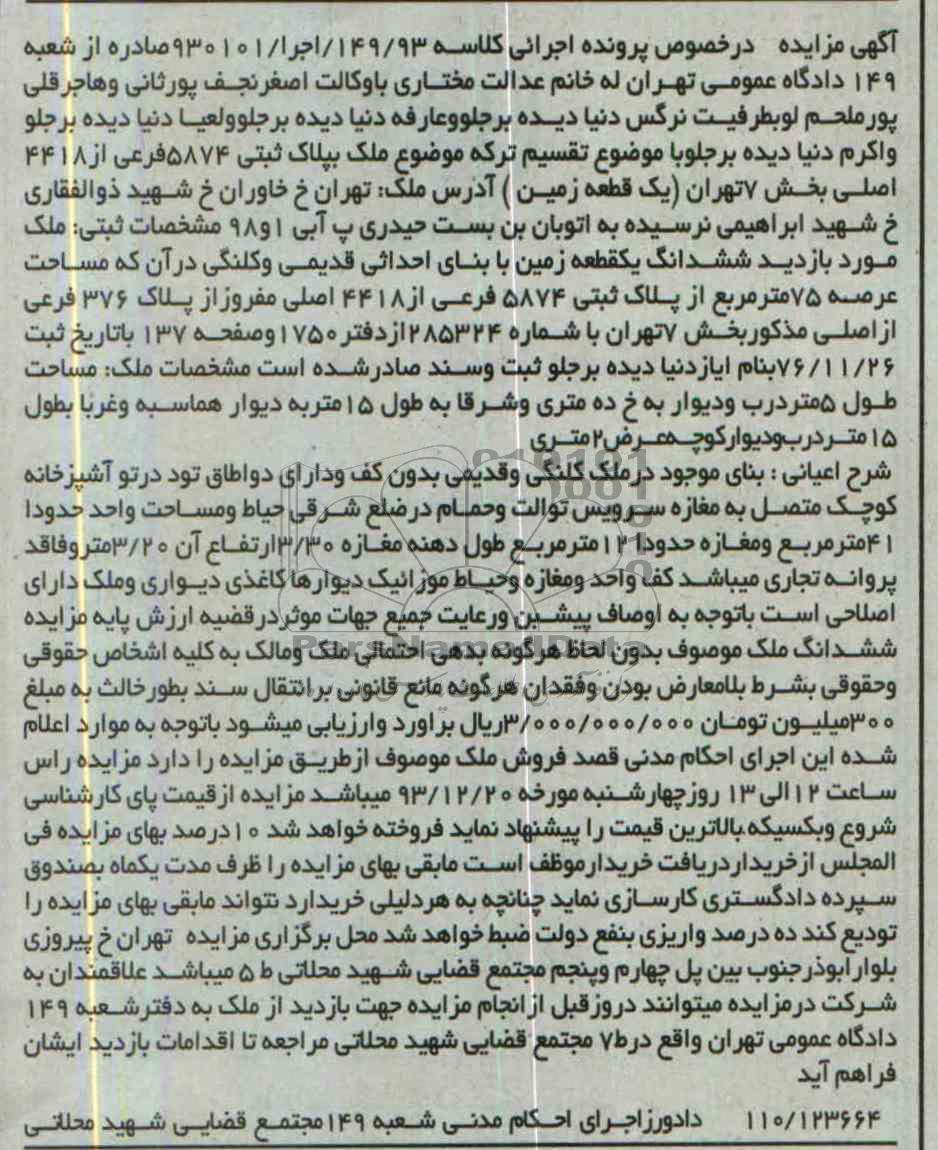 آگهی مزایده درخصوص پرونده اجرائی کلاسه ۱۴۹/۹۳/اجرا/۹۳۰۱۰۱صادره از شعبه
۱۴۹ دادگاه عمومی تهران له خانم عدالت مختاری باوکالت اصغرنجف پورثانی وهاجرقلی
پورملحم لوبطرفیت نرگس دنیا دیده برجلووعارفه دنیا دیده برجلوولعیا دنیا دیده برجلو
واکرم دنیا دیده برجلوبا موضوع تقسیم ترکه موضوع ملک بپلاک ثبتی ۵۸۷۴فرعی از۴۴۱۸
اصلی بخش ۷تهران (یک قطعه زمین) آدرس ملک: تهران خ خاوران خ شهید ذوالفقاری
خ شهید ابراهیمی نرسیده به اتوبان بن بست حیدری پ آبی ۱و۹۸ مشخصات ثبتی: ملک
مورد بازدید ششدانگ یکقطعه زمین با بنای احداثی قدیمی وکلنگی درآن که مساحت
عرصه ۷۵مترمربع از پلاک ثبتی ۵۸۷۴ فرعی از۴۴۱۸ اصلی مفروزاز پلاک ۳۷۶ فرعی
ازاصلی مذکوربخش ۷تهران با شماره ۲۸۵۳۲۴ازدفتر۱۷۵۰وصفحه ۱۳۷ باتاریخ ثبت
۷۶/۱۱/۲۶بنام ایازدنیا دیده برجلو ثبت وسند صادرشده است مشخصات ملک: مساحت
طول ۵متردرب ودیوار به خ ده متری وشرقا به طول ۱۵متربه دیوار هماسبه وغربا بطول
۱۵متردرب‌ودیوارکوچه‌عرض۲متری
شرح اعیانی : بنای موجود درملک کلنگی وقدیمی بدون کف ودارای دواطاق تود درتو آشپزخانه
کوچک متصل به مغازه سرویس توالت وحمام درضلع شرقی حیاط ومساحت واحد حدودا
۴۱مترمربع ومغازه حدودا۱۲مترمربع طول دهنه مغازه ۳/۳۰ارتفاع آن ۳/۲۰متروفاقد
پروانه تجاری میباشد کف واحد ومغازه وحیاط موزائیک دیوارها کاغذی دیواری وملک دارای
اصلاحی است باتوجه به اوصاف پیشبن ورعایت جمیع جهات موثردرقضیه ارزش پایه مزایده
ششدانگ ملک موصوف بدون لحاظ هرگونه بدهی احتمالی ملک ومالک به کلیه اشخاص حقوقی
وحقوقی بشرط بلامعارض بودن وفقدان هرگونه مانع قانونی برانتقال سند بطورخالث به مبلغ
۳۰۰میلیون تومان ۳/۰۰۰/۰۰۰/۰۰۰ریال براورد وارزیابی میشود باتوجه به موارد اعلام
شده این اجرای احکام مدنی قصد فروش ملک موصوف ازطریق مزایده را دارد مزایده راس
ساعت ۱۲الی۱۳ روزچهارشنبه مورخه ۹۳/۱۲/۲۰ میباشد مزایده ازقیمت پای کارشناسی
شروع وبکسیکه بالاترین قیمت را پیشنهاد نماید فروخته خواهد شد ۱۰درصد بهای مزایده فی
المجلس ازخریداردریافت خریدارموظف است مابقی بهای مزایده را ظرف مدت یکماه بصندوق
سپرده دادگستری کارسازی نماید چنانچه به هردلیلی خریدارد نتواند مابقی بهای مزایده را
تودیع کند ده درصد واریزی بنفع دولت ضبط خواهد شد محل برگزاری مزایده تهران خ پیروزی
بلوارابوذرجنوب بین پل چهارم وپنجم مجتمع قضایی شهید محلاتی ط ۵ میباشد علاقمندان به
شرکت درمزایده میتوانند دروز قبل ازانجام مزایده جهت بازدید از ملک به دفترشعبه ۱۴۹
دادگاه عمومی تهران واقع درط۷ مجتمع قضایی شهید محلاتی مراجعه تا اقدامات بازدید ایشان
فراهم آید
۱۱۰/۱۲۳۶۶۴ دادورزاجرای احکام مدنی شعبه ۱۴۹مجتمع قضایی شهید محلاتی
ParsNamadData